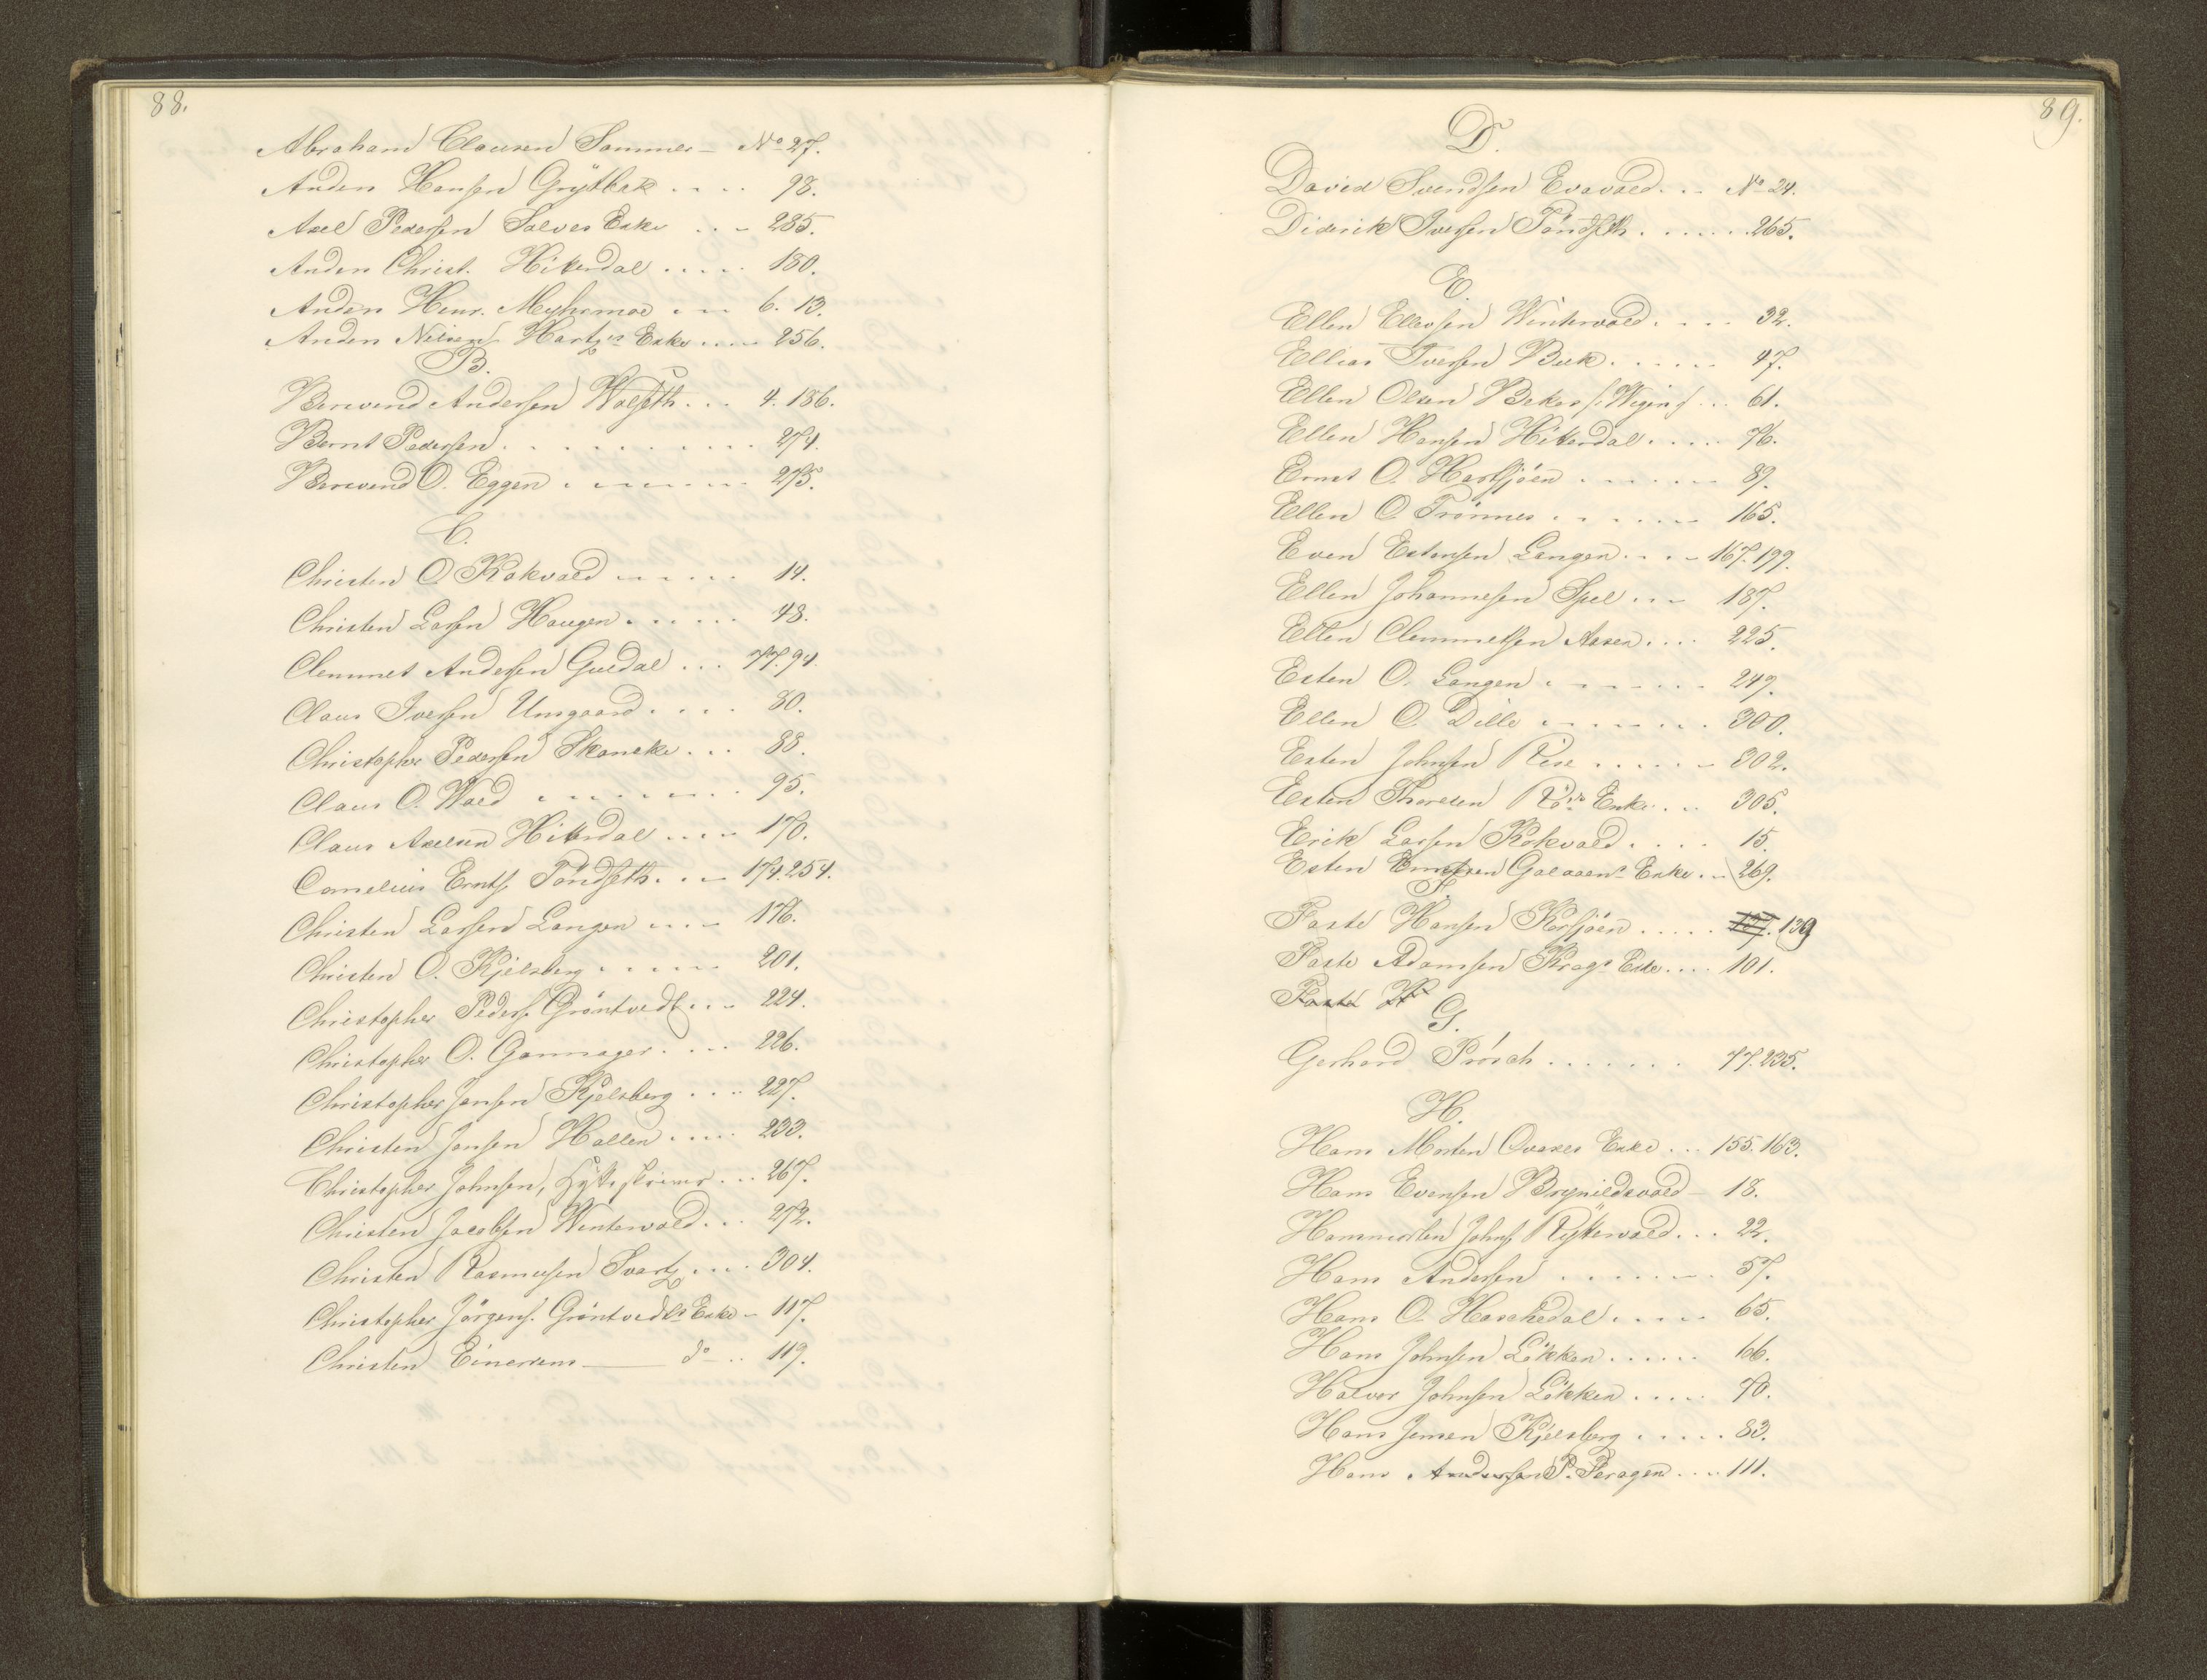 88.
Abraham Clausen Sommer — No 27.
Anders Hansen Grÿtbak .... 98.
Axel Pedersen Salves Enke ... 285.
Anders Christ. Hitterdal ..... 180.
Anders Henr. Meyhrmoe ... 6. 13.
Anders Nilsens Hartz's Enke .... 256.
B.
Berwend Andersen Walseth ... 4. 186.
Bernt Pedersen ......... 274.
Berwend O. Eggen ....... 275.
C.
Christen O. Kokvold ...... 14.
Christen Larsen Haugen ...... 48.
Clemmet Andersen Guldal ... 77. 94.
Claus Iversen Unsgaard .... 80.
Christopher Pedersen Skancke ... 88.
Claus O. Wold ........ 95.
Claus Axelsen Hitterdal .... 170.
Cornelius Erntsen Tøndseth ... 174. 254.
Christen Larsen Langen .... 176.
Christen O. Kjelsberg ...... 201.
Christopher Peders. Grøntvedt ... 224.
Christopher O. Gammager .... 226.
Christopher Jensen Kjelsberg .... 227.
Christen Jensen Hallen ..... 233.
Christopher Johnsen, Hytteskriver ... 267.
Christen Jacobsen Wintervold ... 272.
Christen Rasmusen Svartz .... 304.
Christopher Jörgens. Grøntvedts Enke — 117.
Christen Einersens — do .. 119.
89.
D.
David Svendsen Evavold ... No 24.
Diderik Iversen Tøndseth ...... 265.
E.
Ellen Ellevsen Wintervold .... 32.
Ellias Iversen Bek ...... 47.
Ellen Olsen Bekos /: Wigen :/ ... 61.
Ellen Hansen Hitterdal ..... 76.
Ernst O. Harsjøen ....... 89.
Ellen O. Trønnes ....... 165.
Even Estensen Langen .... 167. 199.
Ellen Johannesen Spel ... 187.
Ellen Clemmetsen Aasen .... 225.
Esten O. Langen ....... 249.
Ellen O. Dille ....... 300.
Esten Johnsen Rise ...... 302.
Esten Thoresen Rö's Enke ... 305.
Erik Larsen Kokvold .... 15.
Esten Galaaens Enke ... 269.
F.
Faste Hansen Korsjøen ..... 139
Faste Adamsen Krags Enke .... 101.
Faste H
G.
Gerhard Prösch ....... 77. 235.
H.
Hans Morten Qvales Enke ... 155. 163.
Hans Evensen Brynildsvold — 18.
Hansmorten Johns. Rÿttervold ... 22.
Hans Andersen ....... 57.
Hans O. Haschedal ..... 65.
Hans Johnsen Løkken ...... 66.
Halvor Johnsen Løkken ..... 70.
Hans Jensen Kjelsberg ..... 83.
Hans Andersen P. Feragen .... 111.